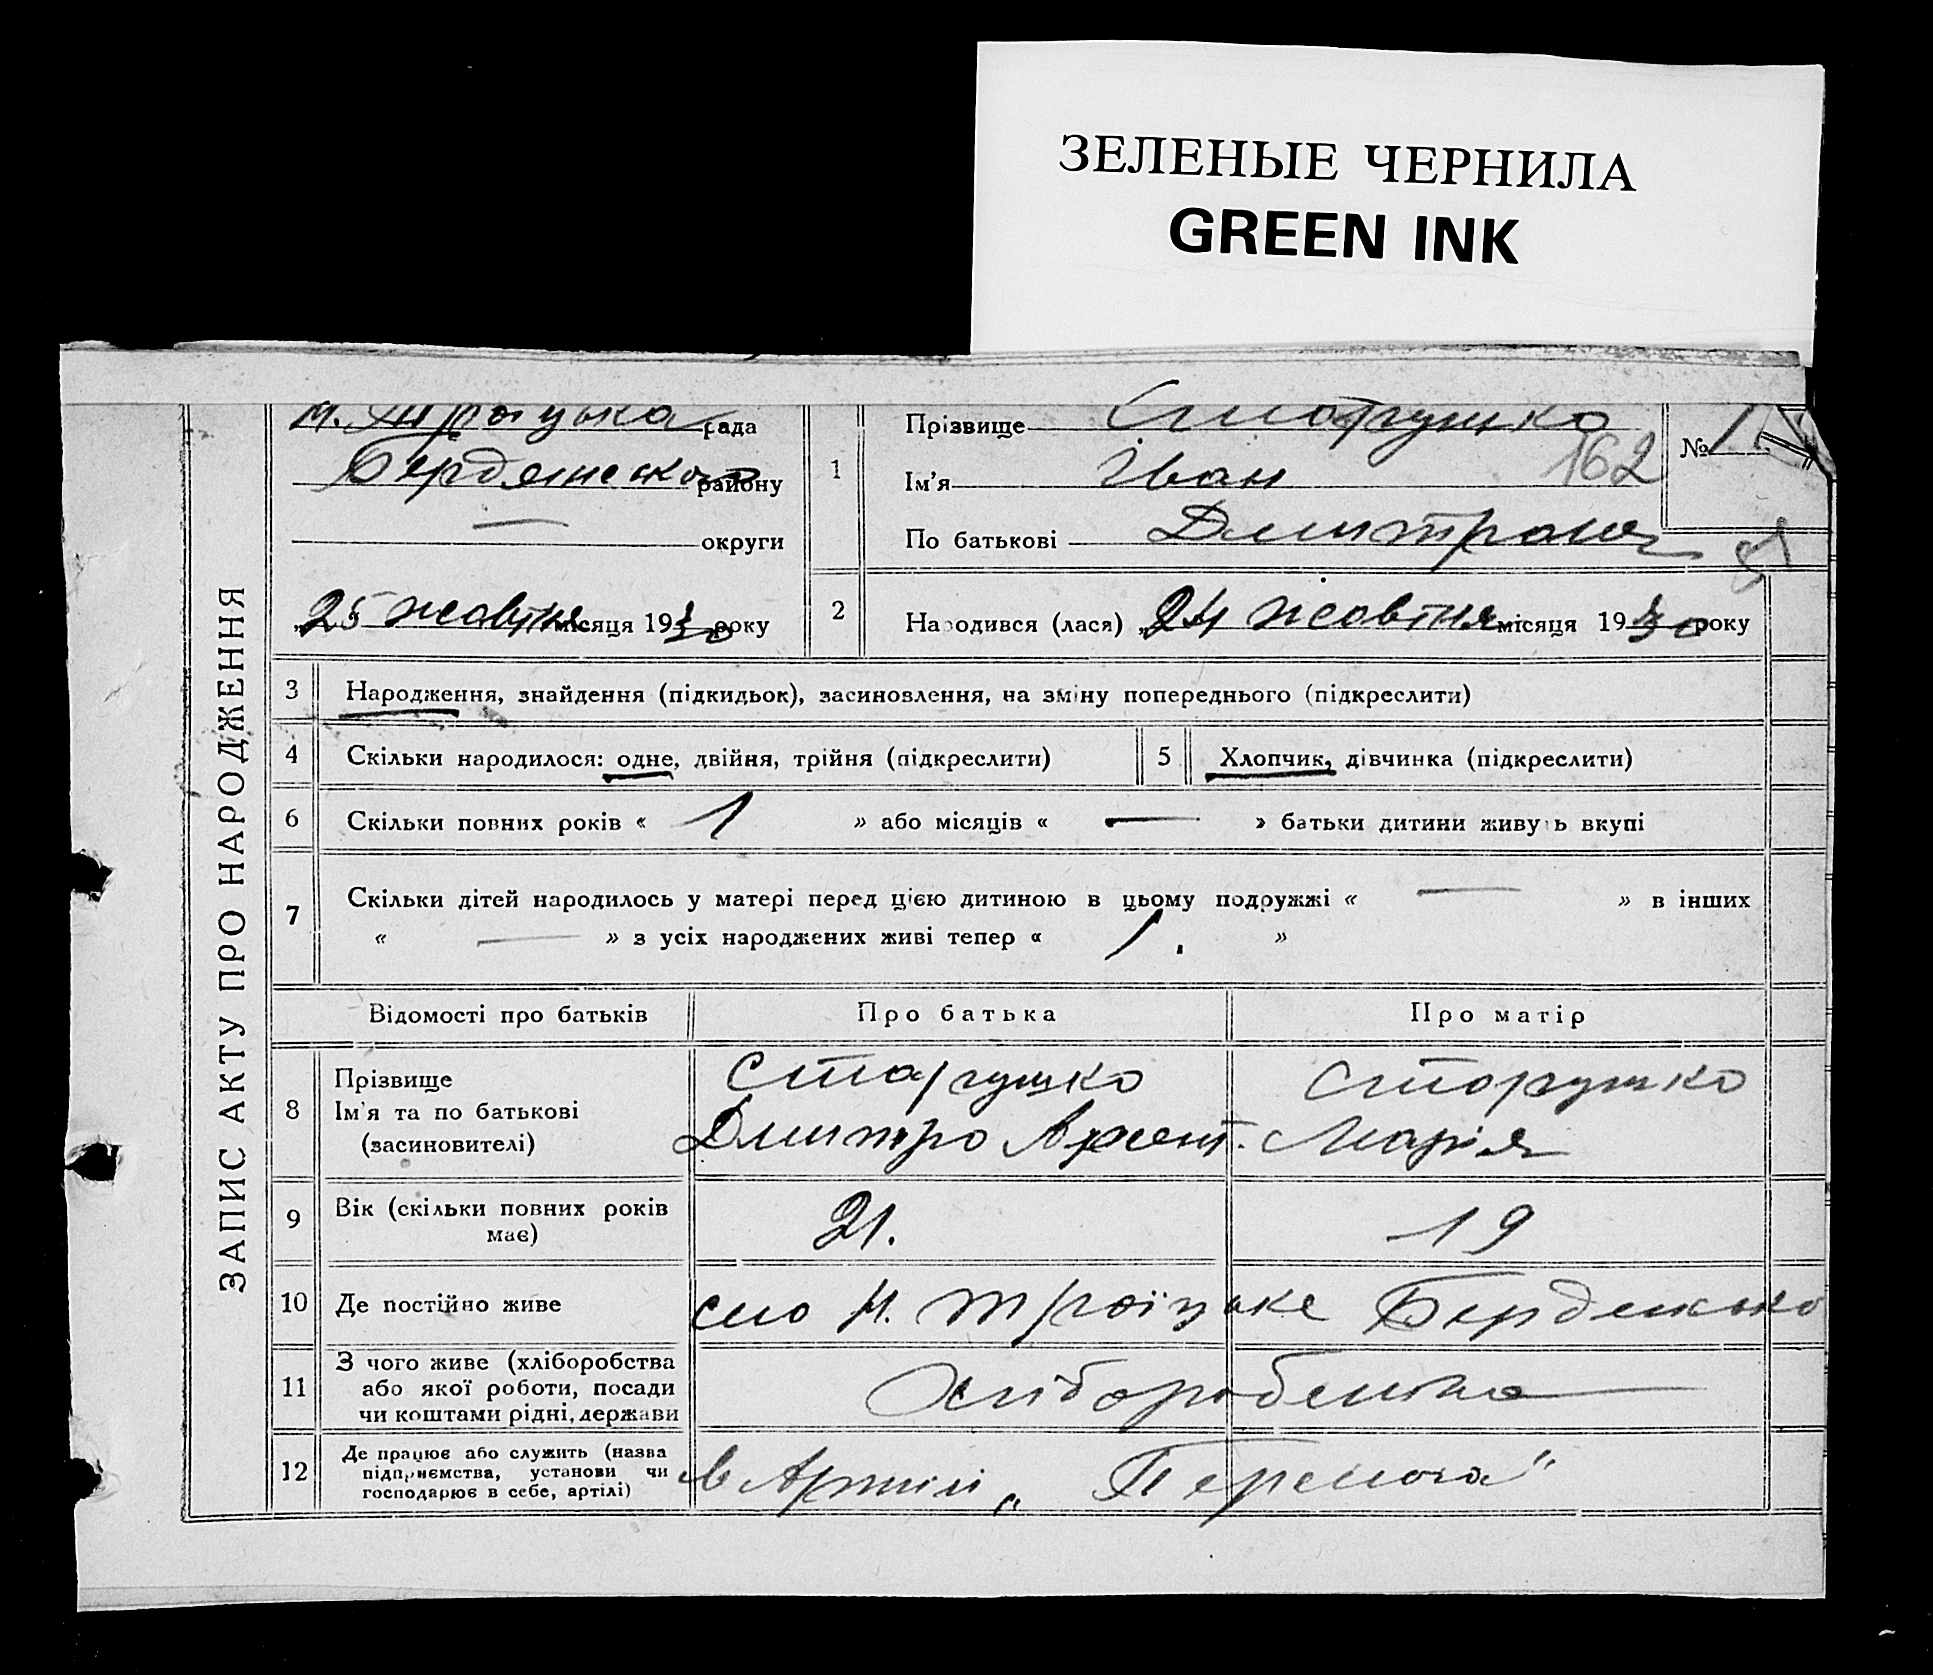 ЗЕЛЕНЫЕ ЧЕРНИЛА
GREEN INK
ЗАПИС АКТУ ПРО НАРОДЖЕННЯ
Н. Троїцька рада
Бердянського району
— округи
„25 жовтня місяця 1930 року
1
Прізвище Старушко
Ім'я Іван
162
По батькові
№
2
Народився (лася) „24 жовтня місяця 1930 року
3 Народження, знайдення (підкидьок), засиновлення, на зміну попереднього (підкреслити)
4 Скільки народилося: одне, двійня, трійня (підкреслити)
5 Хлопчик, дівчинка (підкреслити)
6 Скільки повних років « 1 » або місяців « — » батьки дитини живуть вкупі
7 Скільки дітей народилось у матері перед цією дитиною в цьому подружжі « — » в інших
« — » з усіх народжених живі тепер « 1. »
Відомості про батьків Про батька Про матір
8 Прізвище
Ім'я та по батькові
(засиновителі)
Старушко
Дмитро
Старушко
Марія
9 Вік (скільки повних років
має)
21. 19
10 Де постійно живе
село Н. Троїцьке
11 З чого живе (хліборобства
або якої роботи, посади
чи коштами рідні, держави
12 Де працює або служить (назва
підприємства, установи чи
господарює в себе, артілі)
в Артілі „Перемога"